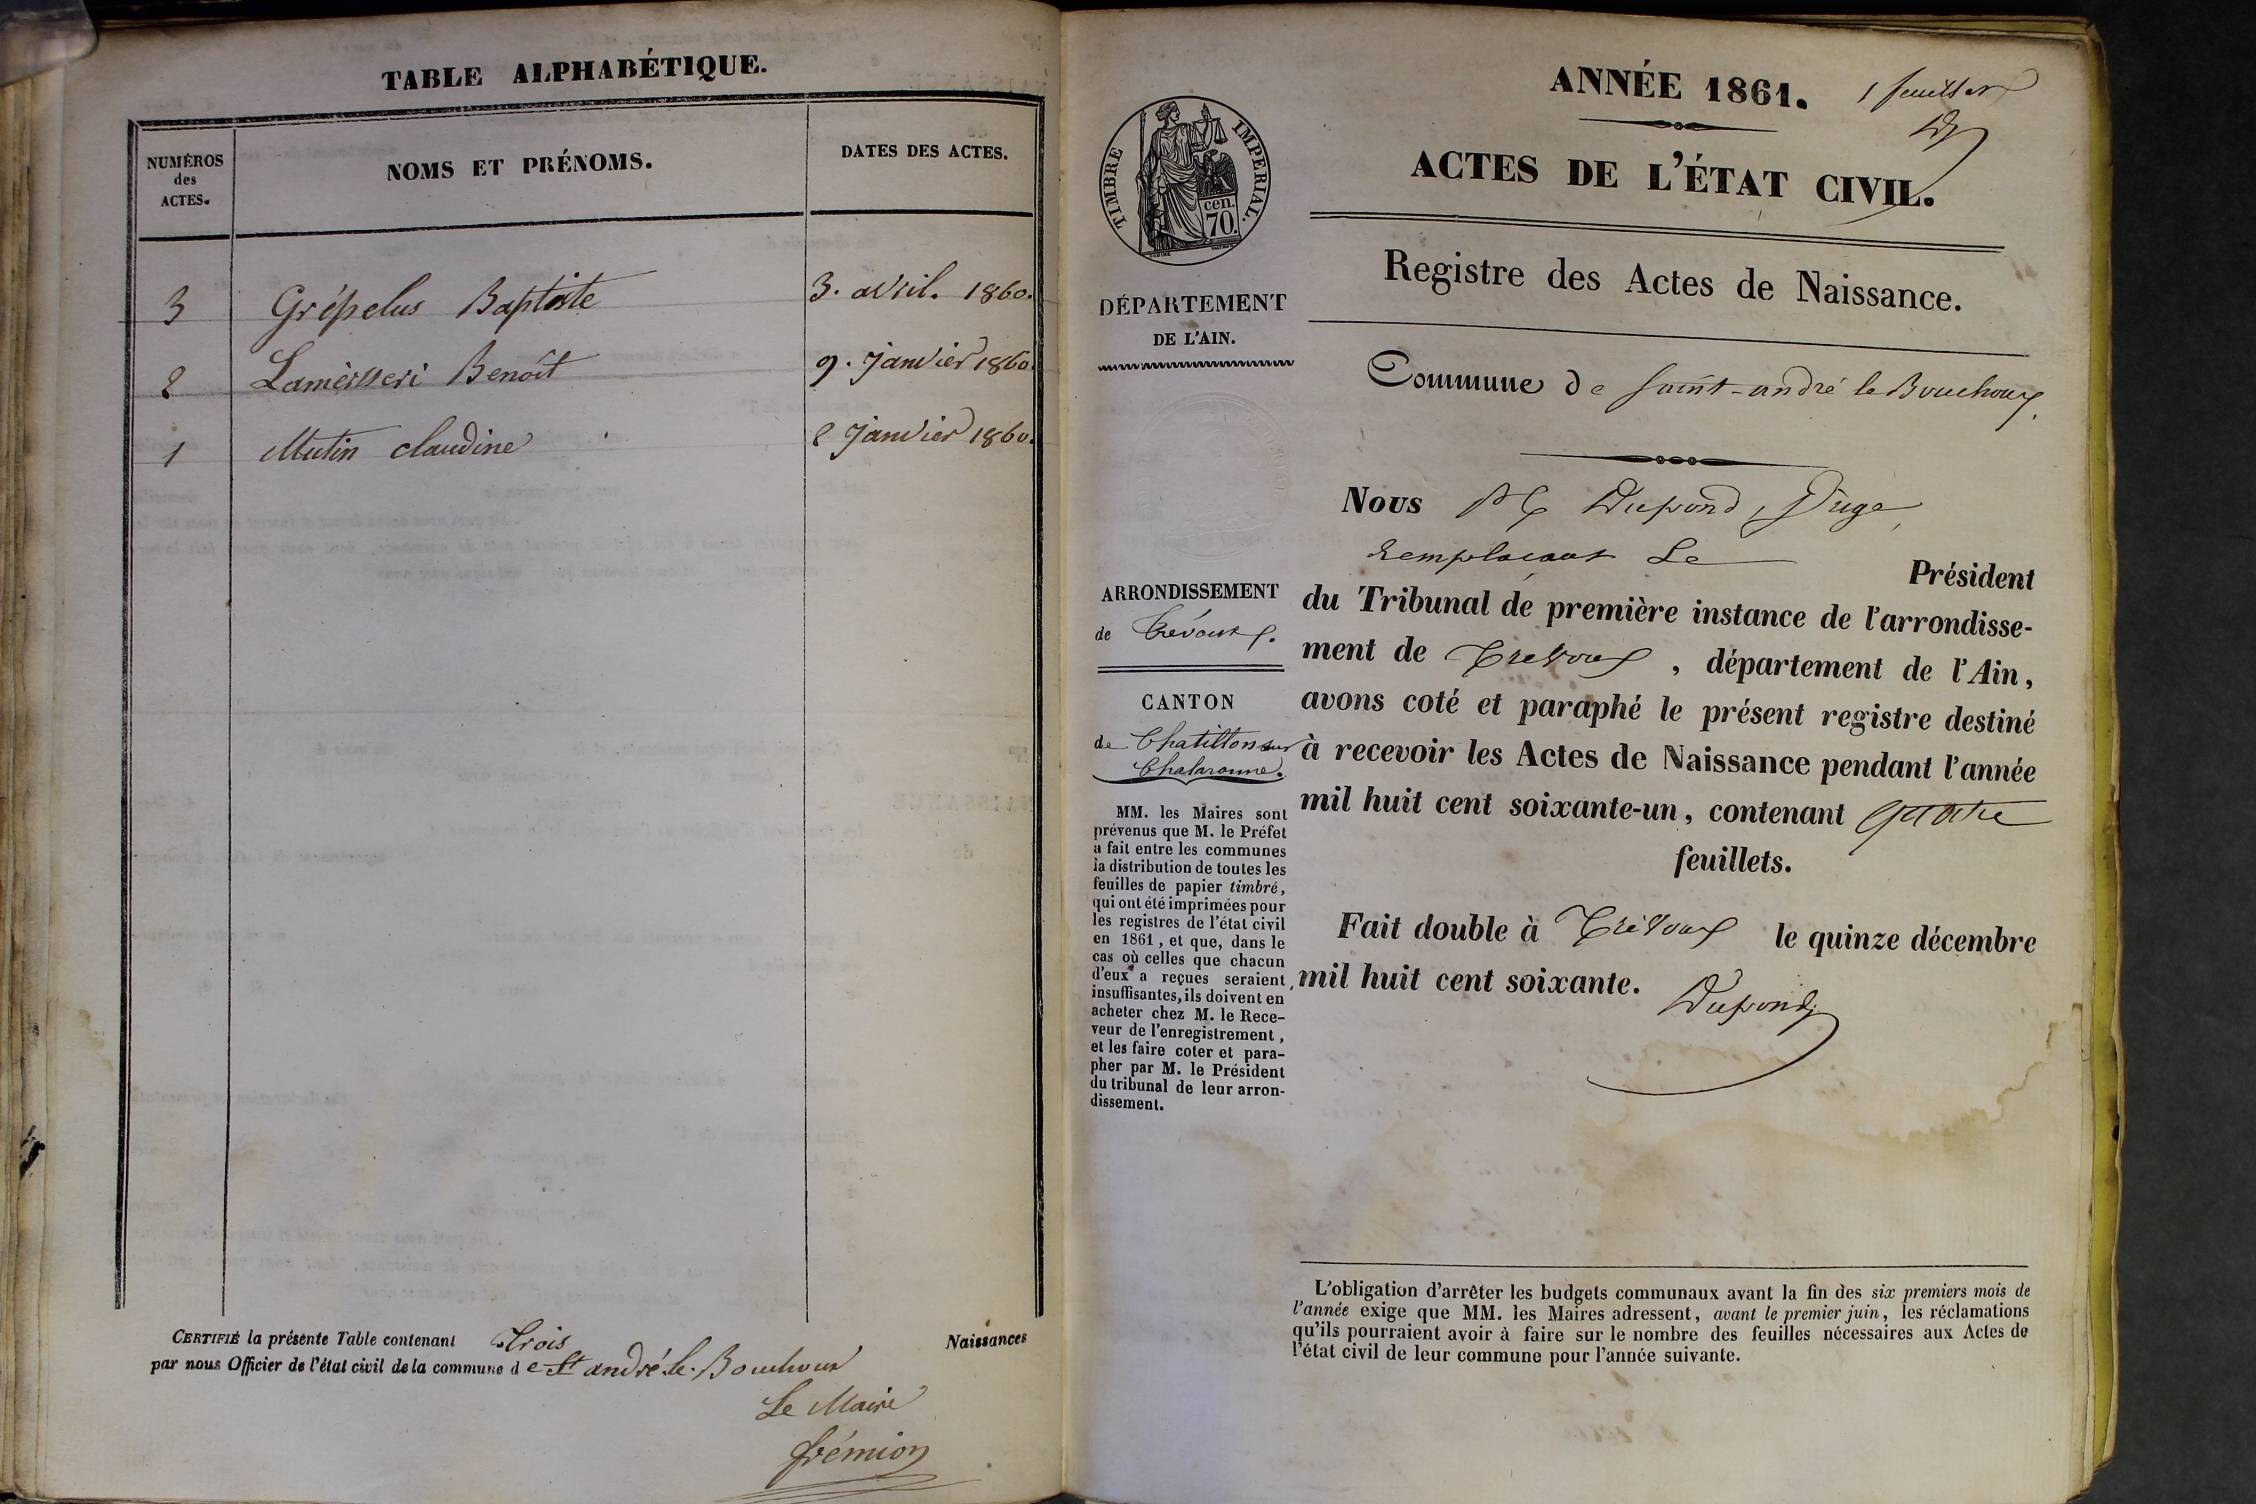 TABLE ALPHABÉTIQUE.
NUMÉROS
des
ACTES.
NOMS ET PRÉNOMS.
DATES DES ACTES.
3 Grépelus Baptiste 3. avril. 1860.
2 Benoît 9. Janvier 1860.
1 Mutin claudine 2 Janvier 1860.
CERTIFIÉ la présente Table contenant trois Naissances
par nous Officier de l'état civil de la commune d e St andré-le-Bouchoux
Le Maire
frémion
ANNÉE 1861.
1 feuillet
ACTES DE L'ÉTAT CIVIL.
TIMBRE IMPERIAL.
cen.
70.
Registre des Actes de Naissance.
DÉPARTEMENT
DE L'AIN.
Commune de saint-andré le Bouchoux.
Nous Dupond, Juge,
remplacant Le Président
du Tribunal de première instance de l'arrondisse-
ment de Trevoux, département de l'Ain,
avons coté et paraphé le présent registre destiné
à recevoir les Actes de Naissance pendant l'année
mil huit cent soixante-un, contenant quatre
feuillets.
Fait double à Trévoux le quinze décembre
mil huit cent soixante.
Dupond
ARRONDISSEMENT
de Trévoux.
CANTON
de Chatillon sur
Chalaronne.
MM. les Maires sont
prévenus que M. le Préfet
a fait entre les communes
la distribution de toutes les
feuilles de papier timbré,
qui ont été imprimées pour
les registres de l'état civil
en 1861, et que, dans le
cas où celles que chacun
d'eux a reçues seraient
insuffisantes, ils doivent en
acheter chez M. le Rece-
veur de l'enregistrement,
et les faire coter et para-
pher par M. le Président
du tribunal de leur arron-
dissement.
L'obligation d'arrêter les budgets communaux avant la fin des six premiers mois de
l'année exige que MM. les Maires adressent, avant le premier juin, les réclamations
qu'ils pourraient avoir à faire sur le nombre des feuilles nécessaires aux Actes de
l'état civil de leur commune pour l'année suivante.